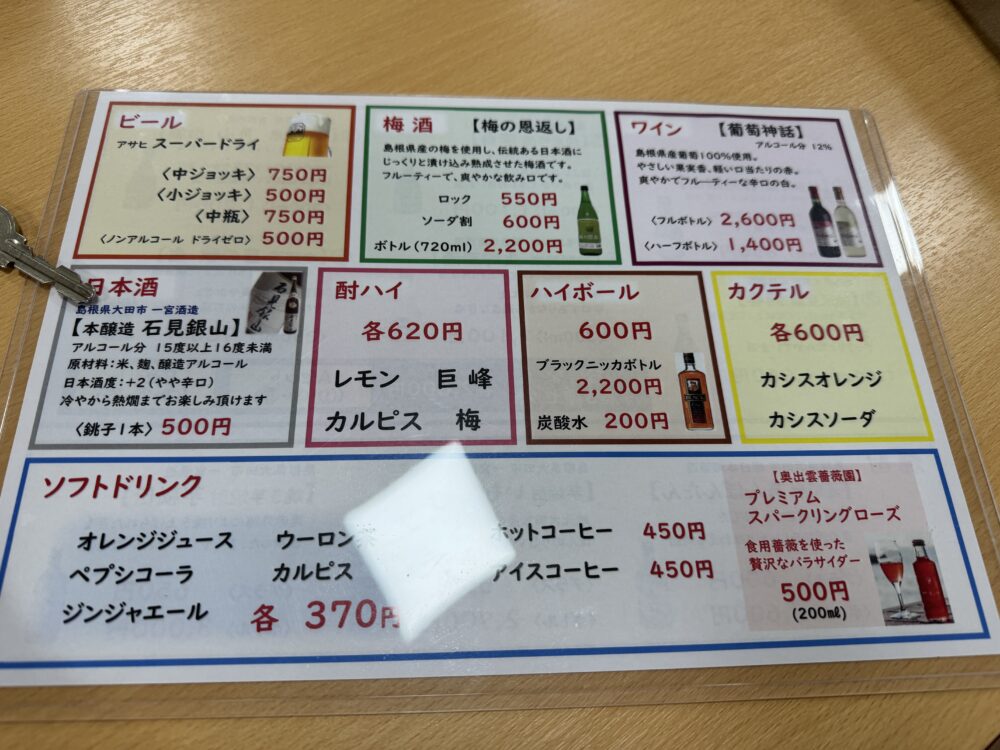 ビール
アサヒ スーパードライ
〈中ジョッキ〉 750円
〈小ジョッキ〉 500円
〈中瓶〉 750円
〈ノンアルコール ドライゼロ〉 500円
梅酒 【梅の恩返し】
島根県産の梅を使用し、伝統ある日本酒に
じっくりと漬け込み熟成させた梅酒です。
フルーティーで、爽やかな飲み口です。
ロック 550円
ソーダ割 600円
ボトル(720ml) 2,200円
ワイン 【葡萄神話】
アルコール分 12%
島根県産葡萄100%使用。
やさしい果実香、軽い口当たりの赤。
爽やかでフルーティーな辛口の白。
〈フルボトル〉 2,600円
〈ハーフボトル〉 1,400円
日本酒
島根県大田市 一宮酒造
【本醸造 石見銀山】
アルコール分 15度以上16度未満
原材料:米、麹、醸造アルコール
日本酒度:+2(やや辛口)
冷やから熱燗までお楽しみ頂けます
〈銚子1本〉 500円
石見銀山
酎ハイ
各620円
レモン 巨峰
カルピス 梅
ハイボール
600円
ブラックニッカボトル
2,200円
炭酸水 200円
カクテル
各600円
カシスオレンジ
カシスソーダ
ソフトドリンク
オレンジジュース ウーロン ホットコーヒー 450円
ペプシコーラ カルピス アイスコーヒー 450円
ジンジャエール 各 370円
【奥出雲薔薇園】
プレミアム
スパークリングローズ
食用薔薇を使った
贅沢なバラサイダー
500円
(200㎖)